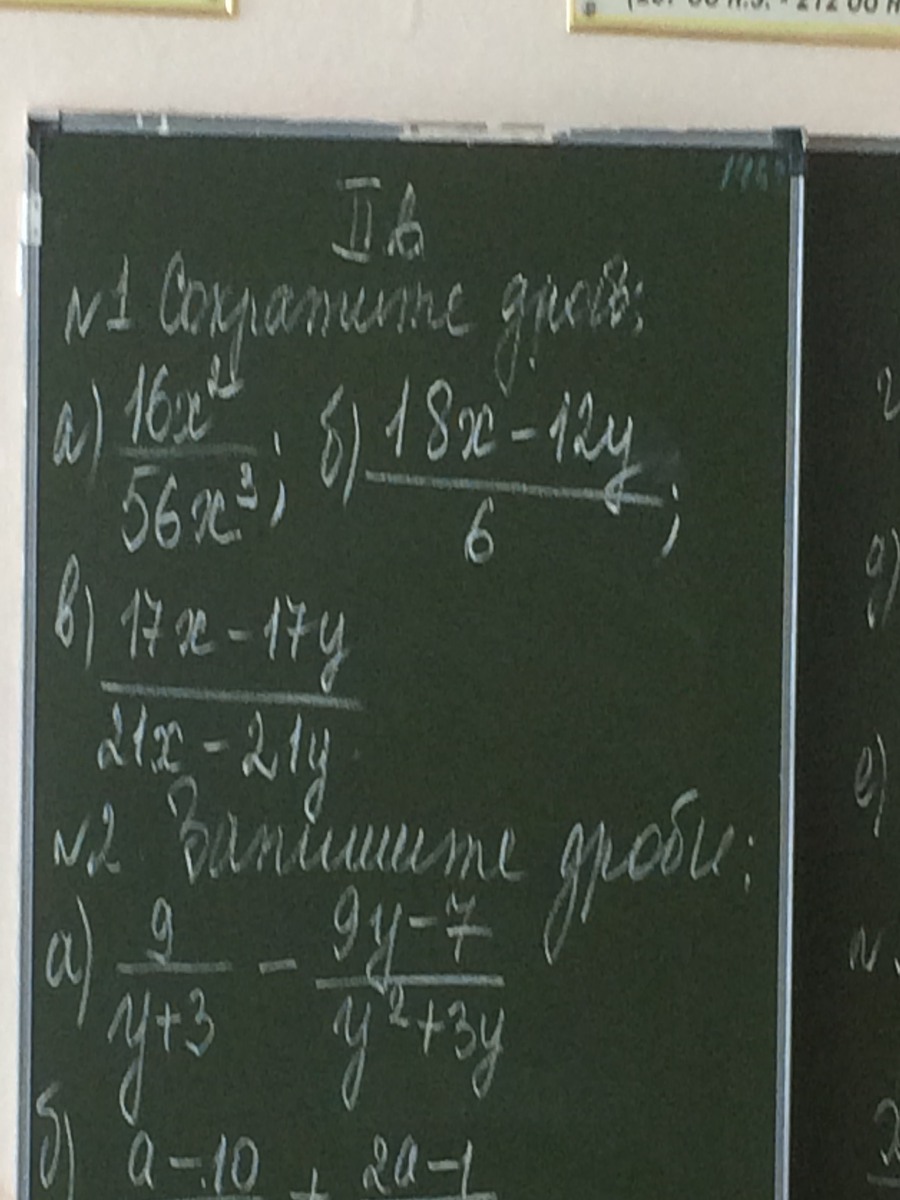 II в
№1 Сократите дробь:
а) 16x²/56x³; б) 18x-12y/6;
в) 17x-17y/21x-21y
№2 Запишите дроби:
а) 9/y+3 - 9y-7/y²+3y
б) a-10 + 2a-1